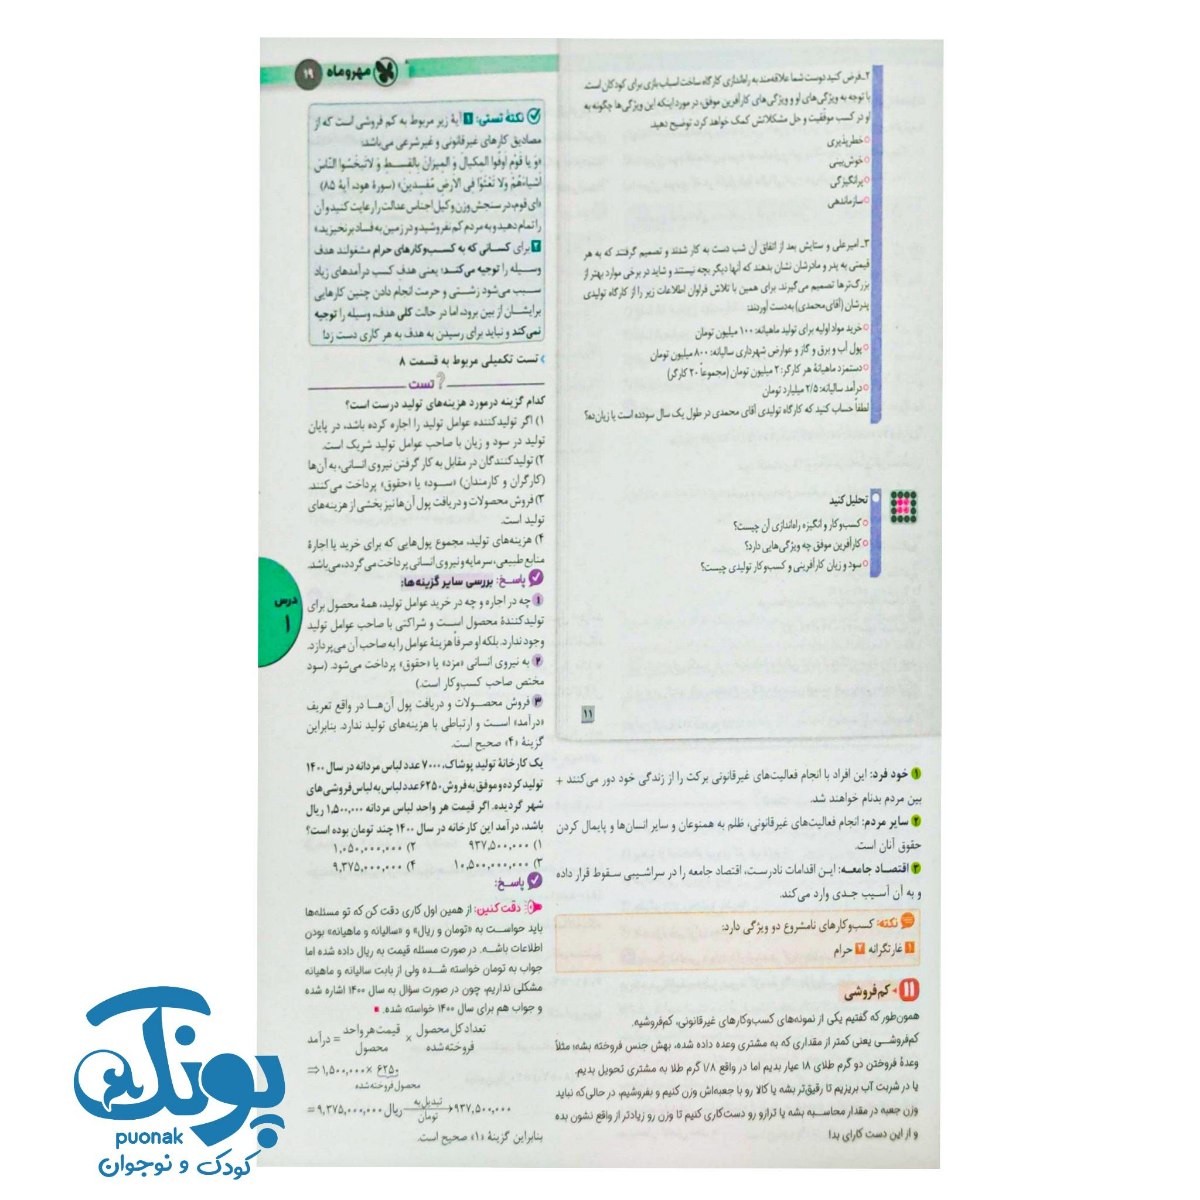 ۲ـ فرض کنید دوست شما علاقه‌مند به راه‌اندازی کارگاه ساخت اسباب‌بازی برای کودکان است.
با توجه به ویژگی‌های او و ویژگی‌های کارآفرین موفق، در مورد اینکه این ویژگی‌ها چگونه به
او در کسب موفقیت و حل مشکلاتش کمک خواهد کرد، توضیح دهید.
○ خطرپذیری
○ خوش‌بینی
○ پرانگیزگی
○ سازماندهی
۳ـ امیرعلی و ستایش بعد از اتفاق آن شب دست به کار شدند و تصمیم گرفتند که به هر
قیمتی به پدر و مادرشان نشان بدهند که آنها دیگر بچه نیستند و شاید در برخی موارد بهتر از
بزرگ‌ترها تصمیم می‌گیرند. برای همین با تلاش فراوان اطلاعات زیر را از کارگاه تولیدی
پدرشان (آقای محمدی) به‌دست آوردند:
○ خرید مواد اولیه برای تولید ماهیانه: ۱۰۰ میلیون تومان
○ پول آب و برق و گاز و عوارض شهرداری سالیانه: ۸۰۰ میلیون تومان
○ دستمزد ماهیانهٔ هر کارگر: ۲ میلیون تومان (مجموعاً ۲۰ کارگر)
○ درآمد سالیانه: ۲/۵ میلیارد تومان
لطفاً حساب کنید که کارگاه تولیدی آقای محمدی در طول یک سال سودده است یا زیان‌ده؟
تحلیل کنید
○ کسب‌وکار و انگیزه راه‌اندازی آن چیست؟
○ کارآفرین موفق چه ویژگی‌هایی دارد؟
○ سود و زیان کارآفرینی و کسب‌وکار تولیدی چیست؟
۱۱
۱ خود فرد: این افراد با انجام فعالیت‌های غیرقانونی برکت را از زندگی خود دور می‌کنند +
بین مردم بدنام خواهند شد.
۲ سایر مردم: انجام فعالیت‌های غیرقانونی، ظلم به همنوعان و سایر انسان‌ها و پایمال کردن
حقوق آنان است.
۳ اقتصاد جامعه: این اقدامات نادرست، اقتصاد جامعه را در سراشیبی سقوط قرار داده
و به آن آسیب جدی وارد می‌کند.
نکته: کسب‌وکارهای نامشروع دو ویژگی دارد:
۱ غارتگرانه ۲ حرام
۱۱ کم‌فروشی
همون‌طور که گفتیم یکی از نمونه‌های کسب‌وکارهای غیرقانونی، کم‌فروشیه.
کم‌فروشی یعنی کمتر از مقداری که به مشتری وعده داده شده، بهش جنس فروخته بشه؛ مثلاً
وعدهٔ فروختن دو گرم طلای ۱۸ عیار بدیم اما در واقع ۱/۸ گرم طلا به مشتری تحویل بدیم.
یا در شربت آب بریزیم تا رقیق‌تر بشه یا کالا رو با جعبه‌اش وزن کنیم و بفروشیم، در حالی‌که نباید
وزن جعبه در مقدار محاسبه بشه یا ترازو رو دست‌کاری کنیم تا وزن رو زیادتر از واقع نشون بده
و از این دست کارای بد!
مهروماه ۱۹
نکتهٔ تستی: ۱ آیهٔ زیر مربوط به کم فروشی است که از
مصادیق کارهای غیرقانونی و غیرشرعی می‌باشد:
«وَ یا قَومِ أوفُوا المِکیالَ وَ المیزانَ بِالقِسطِ وَ لا تَبخَسُوا النّاسَ
أشیاءَهُم وَلا تَعثَوا فِی الأرضِ مُفسِدین» (سورهٔ هود، آیهٔ ۸۵)
«ای قوم، در سنجش وزن و کیل اجناس عدالت را رعایت کنید و آن
را تمام دهید و به مردم کم نفروشید و در زمین به فساد برنخیزید.»
۲ برای کسانی که به کسب‌وکارهای حرام مشغولند هدف
وسیله را توجیه می‌کند؛ یعنی هدف کسب درآمدهای زیاد
سبب می‌شود زشتی و حرمت انجام دادن چنین کارهایی
برایشان از بین برود، اما در حالت کلی هدف، وسیله را توجیه
نمی‌کند و نباید برای رسیدن به هدف به هر کاری دست زد!
تست تکمیلی مربوط به قسمت ۸
تست
کدام گزینه درمورد هزینه‌های تولید درست است؟
۱) اگر تولیدکننده عوامل تولید را اجاره کرده باشد، در پایان
تولید در سود و زیان با صاحب عوامل تولید شریک است.
۲) تولیدکنندگان در مقابل به کار گرفتن نیروی انسانی، به آن‌ها
(کارگران و کارمندان) «سود» یا «حقوق» پرداخت می‌کنند.
۳) فروش محصولات و دریافت پول آن‌ها نیز بخشی از هزینه‌های
تولید است.
۴) هزینه‌های تولید، مجموع پول‌هایی که برای خرید یا اجارهٔ
منابع طبیعی، سرمایه و نیروی انسانی پرداخت می‌گردد، می‌باشد.
پاسخ: بررسی سایر گزینه‌ها:
۱ چه در اجاره و چه در خرید عوامل تولید، همهٔ محصول برای
تولیدکنندهٔ محصول است و شراکتی با صاحب عوامل تولید
وجود ندارد. بلکه او صرفاً هزینهٔ عوامل را به صاحب آن می‌پردازد.
۲ به نیروی انسانی «مزد» یا «حقوق» پرداخت می‌شود. (سود
مختص صاحب کسب‌وکار است.)
۳ فروش محصولات و دریافت پول آن‌ها در واقع تعریف
«درآمد» است و ارتباطی با هزینه‌های تولید ندارد. بنابراین
گزینهٔ «۴» صحیح است.
یک کارخانهٔ تولید پوشاک، ۷۰۰۰ عدد لباس مردانه در سال ۱۴۰۰
تولید کرده و موفق به فروش ۶۲۵۰ عدد لباس به لباس فروشی‌های
شهر گردیده. اگر قیمت هر واحد لباس مردانه ۱,۵۰۰,۰۰۰ ریال
باشد، درآمد این کارخانه در سال ۱۴۰۰ چند تومان بوده است؟
۱) ۹۳۷,۵۰۰,۰۰۰ ۲) ۱,۰۵۰,۰۰۰,۰۰۰
۳) ۱۰,۵۰۰,۰۰۰,۰۰۰ ۴) ۹,۳۷۵,۰۰۰,۰۰۰
پاسخ:
دقت کنین: از همین اول کاری دقت کن که تو مسئله‌ها
باید حواست به «تومان و ریال» و «سالیانه و ماهیانه» بودن
اطلاعات باشه. در صورت مسئله قیمت به ریال داده شده اما
جواب به تومان خواسته شده ولی از بابت سالیانه و ماهیانه
مشکلی نداریم، چون در صورت سؤال به سال ۱۴۰۰ اشاره شده
و جواب هم برای سال ۱۴۰۰ خواسته شده.
تعداد کل محصول فروخته شده × قیمت هر واحد محصول = درآمد
⇒ ۱,۵۰۰,۰۰۰ × ۶۲۵۰
محصول فروخته شده
= ۹,۳۷۵,۰۰۰,۰۰۰ ریال تبدیل به تومان → ۹۳۷,۵۰۰,۰۰۰
بنابراین گزینهٔ «۱» صحیح است.
درس
۱
پونک
puonak
کودک و نوجوان